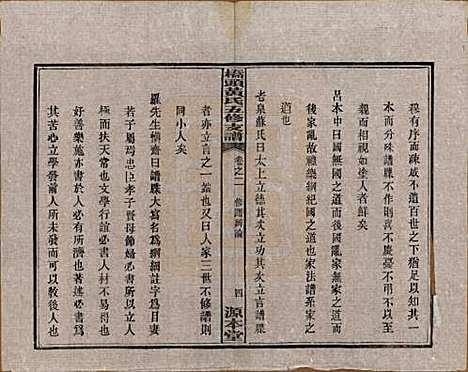 親有序而疎戚不遺百世之下猶足以知其一
本而分殊譜牒不作則喜不慶憂不弔不以至
親而相視如塗人者鮮矣
呂本中曰國無國之道也而後國亂家無家之道也而
後家亂故禮樂綱紀國之道也家法譜系家之
道也
老泉蘇氏曰太上立德其次立功其次立言譜牒
橋頭黃氏五修支譜
卷之二
修譜新論
四
源本堂
者亦立言之一蓋也又曰人家三世不修譜則
同小人矣
羅先生惟齋曰譜牒大寫名爲綱細註字爲目
若子屬焉忠臣孝子賢母節婦必書所以立人
極而扶天常也文學行誼必書人材不易得也
好善樂施必書有所濟也著述必書
其苦心立學發前人所未發而可以教後人也